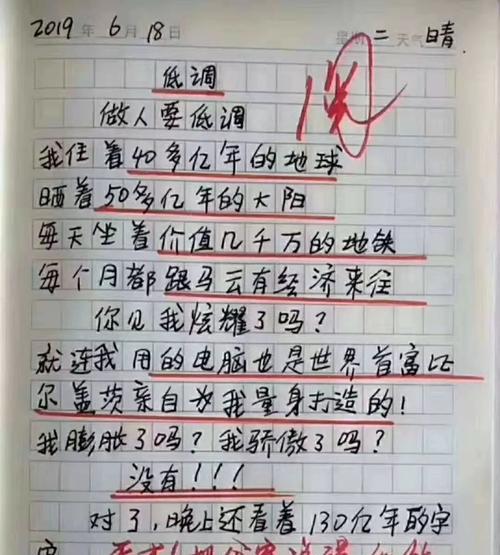 2019年6月18日 星期二 天气晴
低调
做人要低调
我住着40多亿年的地球
晒着50多亿年的大阳
每天坐着价值几千万的地铁
每个月都跟马云有经济来往
你见我炫耀了吗?
就连我用的电脑也是世界首富比
尔盖茨亲自为我量身打造的!
我膨胀了吗?我骄傲了吗?
没有!!!
对了,晚上还看着130亿年的宇